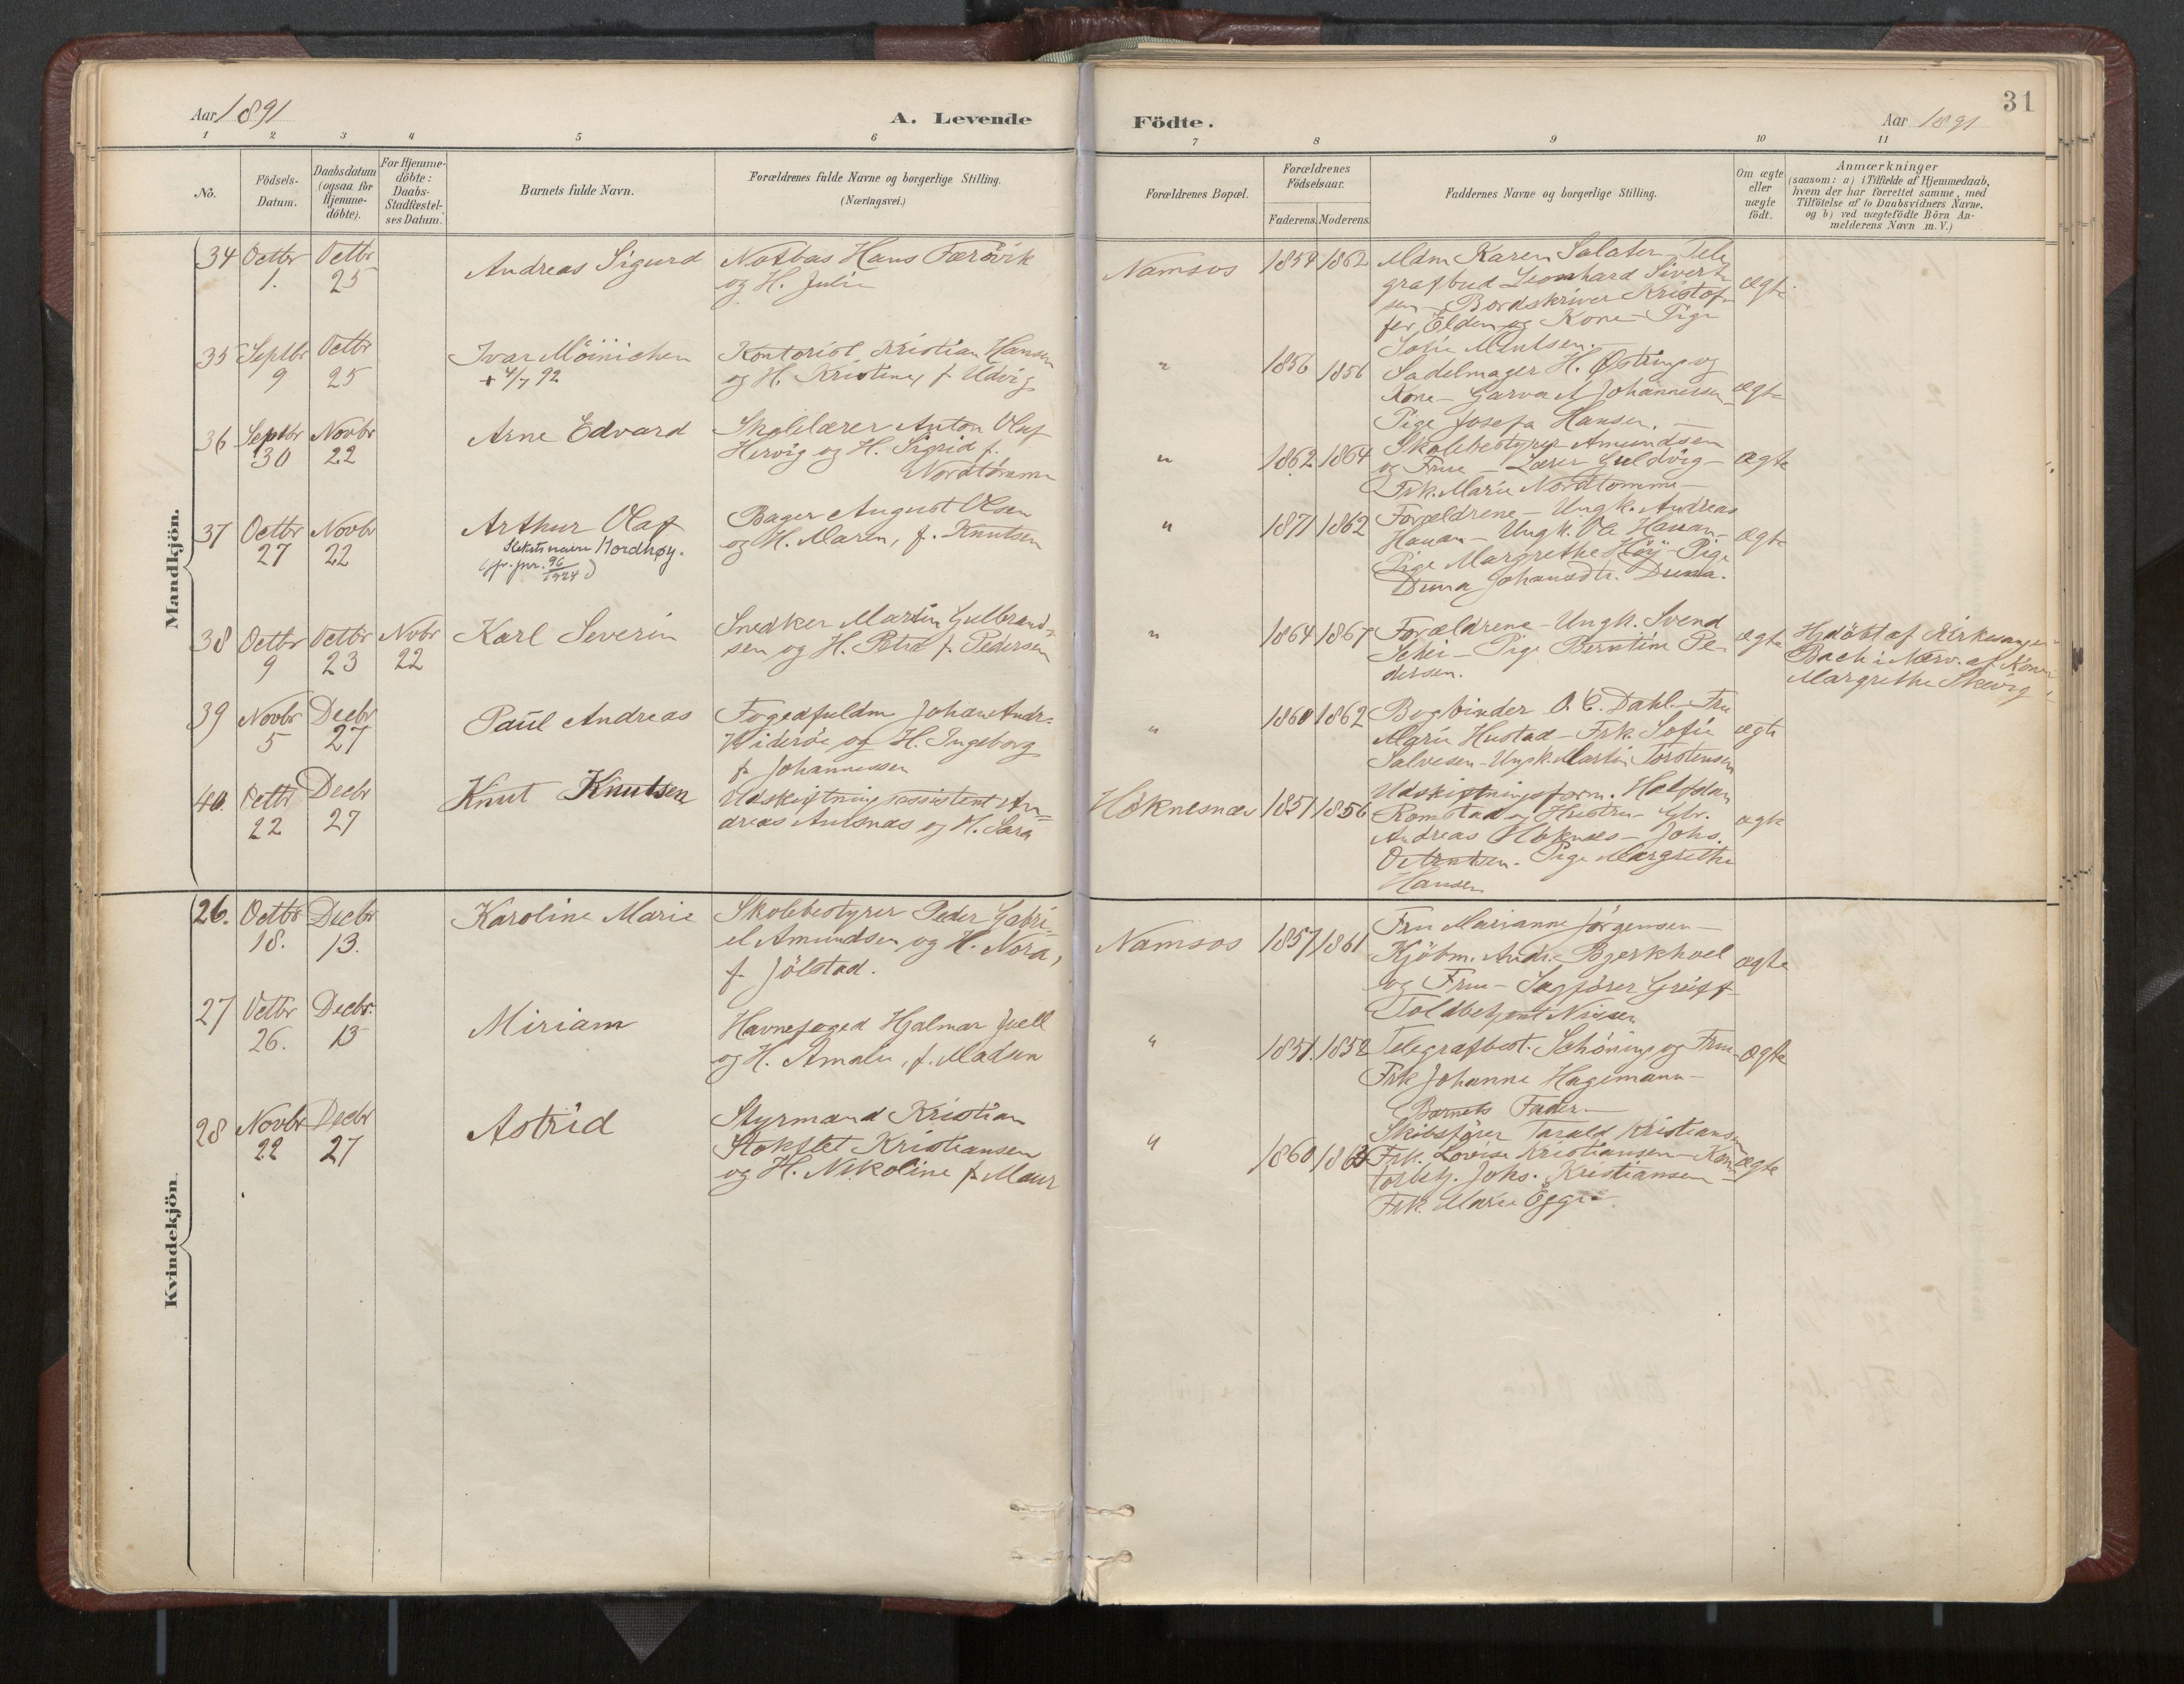 Aar 1891
A. Levende
Födte.
Aar 1891
31
1 2 3 4 5 6 7 8 9 10 11
No.
Födsels-
Datum.
Daabsdatum
(ogsaa for
Hjemme-
döbte).
For Hjemme-
döbte:
Daabs-
Stadfæstel-
ses Datum.
Barnets fulde Navn.
Forældrenes fulde Navne og borgerlige Stilling.
(Næringsvei.)
Forældrenes Bopæl.
Forældrenes
Födselsaar.
Faderens. Moderens.
Faddernes Navne og borgerlige Stilling.
Om ægte
eller
uægte
födt.
Anmærkninger
(saasom: a) i Tilfælde af Hjemmedaab,
hvem der har forrettet samme, med
Tilföielse af to Daabsvidners Navne,
og b) ved uægtefödte Börn An-
melderens Navn m.V.)
Mandkjön.
34 Octbr 1. Octbr 25
Andreas Sigurd
Notbas Hans Færövik
og H. Julie
Namsos
1854 1862
Mdm Karen Salater - Tele
grafbud Leonhard Sivert
sen - Bordskriver Kristof
fer Elden og Kone - Pige
Sofie
ægte
35 Septbr 9 Octbr 25
Ivar Möinichen
+ 4/7 92
Kontorist Kristian Hansen
og H. Kristine, f. Udvig
"
1856 1856
Sadelmager H. Østring og
Kone - Garver A Johannessen
Pige Josefa Hansen. —
ægte
36 Septbr 30 Novbr 22
Arne Edvard
Skolelærer Anton Olaf
Hervig og H. Sigrid f.
Nordtömme
"
1862 1864
Skolebestyrer Amundsen
og Frue - Lærer Guldvig -
Frk. Marie Nordtömme -
ægte
37 Octbr 27 Novbr 22
Arthur Olaf
Slektsnavn Nordhøy.
(jfr. jnr. 96/1924)
Bager August Olsen
og H. Maren, f. Knutsen
"
1871 1862
Forældrene - Ungk. Andreas
Hauan - Ungk. Ole Hauan -
Pige Margrethe Höy - Pige
Duna Johansdtr. Duna.
ægte
38 Octbr 9 Octbr 23 Novbr 22
Karl Severin
Snedker Martin Gulbrand-
sen og H. Petra f. Pedersen
"
1864 1867
Forældrene - Ungk. Svend
Schei - Pige Berntine Pe-
dersen.
ægte
Hjdöbt af Kirkesanger
Bach i Nærv. af Kone
Margrethe Skevig
39 Novbr 5 Decbr 27
Paul Andreas
Fogedfuldm Johan Andr.
Wideröe og H. Ingeborg
f. Johannessen
"
1860 1862
Bogbinder O. C. Dahl - Fru
Marie Hustad - Frk. Sofie
Salvesen - Ungk. Martin Torstensen
ægte
40 Octbr 22 Decbr 27
Knut Knutsen
Udskiftningsassistent An-
dreas Aulsnæs og H. Sara
Höknesnæs
1851 1856
Udskiftningsform. Halfdan
Romstad og Hustru - Gbr.
Andreas Höknes - Johs.
Pige Margrethe
Hansen
ægte
Kvindekjön.
26. Octbr 18. Decbr 13.
Karoline Marie
Skolebestyrer Peder Gabri-
el Amundsen og H. Nora,
f. Jölstad.
Namsos
1857 1861
Fru Marianne Jörgensen -
Kjöbm. Andr. Bjerkhoel
og Frue - Sagförer Greiff -
Toldbetjent Nissen
ægte
27 Octbr 26. Decbr. 13
Miriam
Havnefoged Hjalmar Juell
og H. Amalie, f. Madsen
"
1851. 1852
Telegrafbest. Schöning og Frue
Frk Johanne Hagemann -
Barnets Fader. —
ægte
28 Novbr 22 Decbr 27
Astrid
Styrmand Kristian
Stokflet Kristiansen
og H. Nikoline f. Maur
"
1860 1863
Skibsförer Tarald Kristiansen
Frk. Lovise Kristiansen - Kon-
torbetj. Johs. Kristiansen
Frk. Marie Egge.
ægte